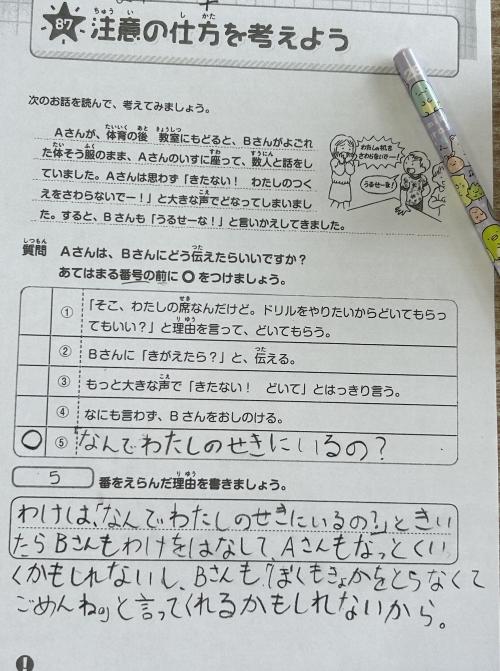 87 注意の仕方を考えよう
次のお話を読んで、考えてみましょう。
Aさんが、体育の後 教室にもどると、Bさんがよごれ
た体そう服のまま、Aさんのいすに座って、数人と話をし
ていました。Aさんは思わず「きたない! わたしのつく
えをさわらないでー!」と大きな声でどなってしまいまし
た。すると、Bさんも「うるせーな!」と言いかえしてきました。
わたしの机を
さわらないでー!
うるせーな!
質問 Aさんは、Bさんにどう伝えたらいいですか?
あてはまる番号の前に○をつけましょう。
① 「そこ、わたしの席なんだけど。ドリルをやりたいからどいてもらっ
てもいい?」と理由を言って、どいてもらう。
② Bさんに「きがえたら?」と、伝える。
③ もっと大きな声で「きたない! どいて」とはっきり言う。
④ なにも言わず、Bさんをおしのける。
○ ⑤ 「なんでわたしのせきにいるの?
5 番をえらんだ理由を書きましょう。
わけは、「なんでわたしのせきにいるの?」ときい
たらBさんもわけをはなして、Aさんもなっとくい
くかもしれないし、Bさんも、「ぼくもきょかをとらなくて
ごめんね。」と言ってくれるかもしれないから。